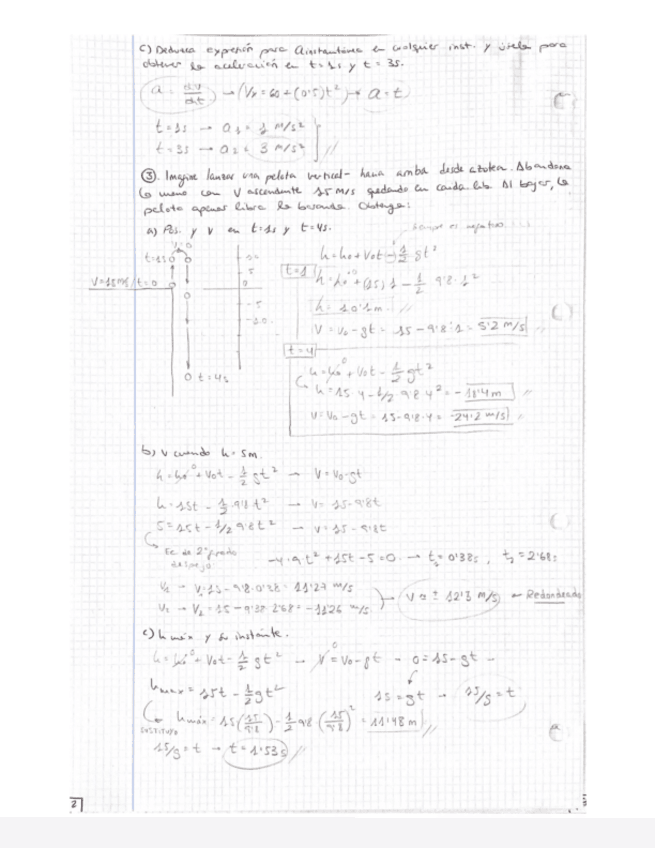 c) Deduzca expresión para a instantánea en cualquier inst. y úsela para
obtener la aceleración en t=1s y t=3s.
a = dv/dt → (Vx = 60 + (0'5)t²) → a = t
t=1s → a1 = 1 m/s²
t=3s → a2 = 3 m/s²
③. Imagine lanzar una pelota vertical- hacia arriba desde azotea. Abandona
la mano con V ascendente 15 m/s quedando en caída libre. Al bajar, la
pelota apenas libra la baranda. Obtenga:
a) Pos. y v en t=1s y t=4s.
siempre es negativo
V=0
t=1s
V=15m/s / t=0
10
5
0
-5
-10
t=4s
h = h0 + V0t - 1/2 gt²
t=1
h = h0 + (15)1 - 1/2 9'8·1²
h = 10'1m
V = V0 - gt = 15 - 9'8·1 = 5'2 m/s
t=4
h = h0 + V0t - 1/2 gt²
h = 15·4 - 1/2 9'8·4² = -18'4m
V = V0 - gt = 15 - 9'8·4 = -24'2 m/s
b) V cuando h = 5m.
h = h0 + V0t - 1/2 gt² → V = V0 - gt
h = 15t - 1/2 9'8t² → V = 15 - 9'8t
5 = 15t - 1/2 9'8t² → V = 15 - 9'8t
Ec de 2º grado
-4'9t² + 15t - 5 = 0 → t1 = 0'38s, t2 = 2'68s
V1 → V = 15 - 9'8·0'38 = 11'27 m/s
V2 → V2 = 15 - 9'8·2'68 = -11'26 m/s
V ≈ ± 12'3 m/s → Redondeado
c) h máx y su instante.
h = h0 + V0t - 1/2 gt² → V = V0 - gt → 0 = 15 - gt →
hmáx = 15t - 1/2 gt²
15 = gt → 15/g = t
SUSTITUYO
hmáx = 15(15/9'8) - 1/2 9'8 (15/9'8)² = 11'48 m
15/g = t → t = 1'53s
2